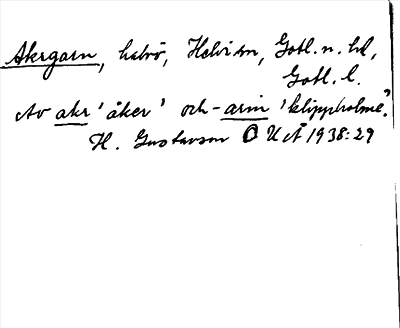 Akrgarn, halvö, Hellvi sn, Gotl. n. hd,
Gotl. l.
Av akr 'åker' och -arn 'klippholme'.
H. Gustavson O UÅ 1938:29